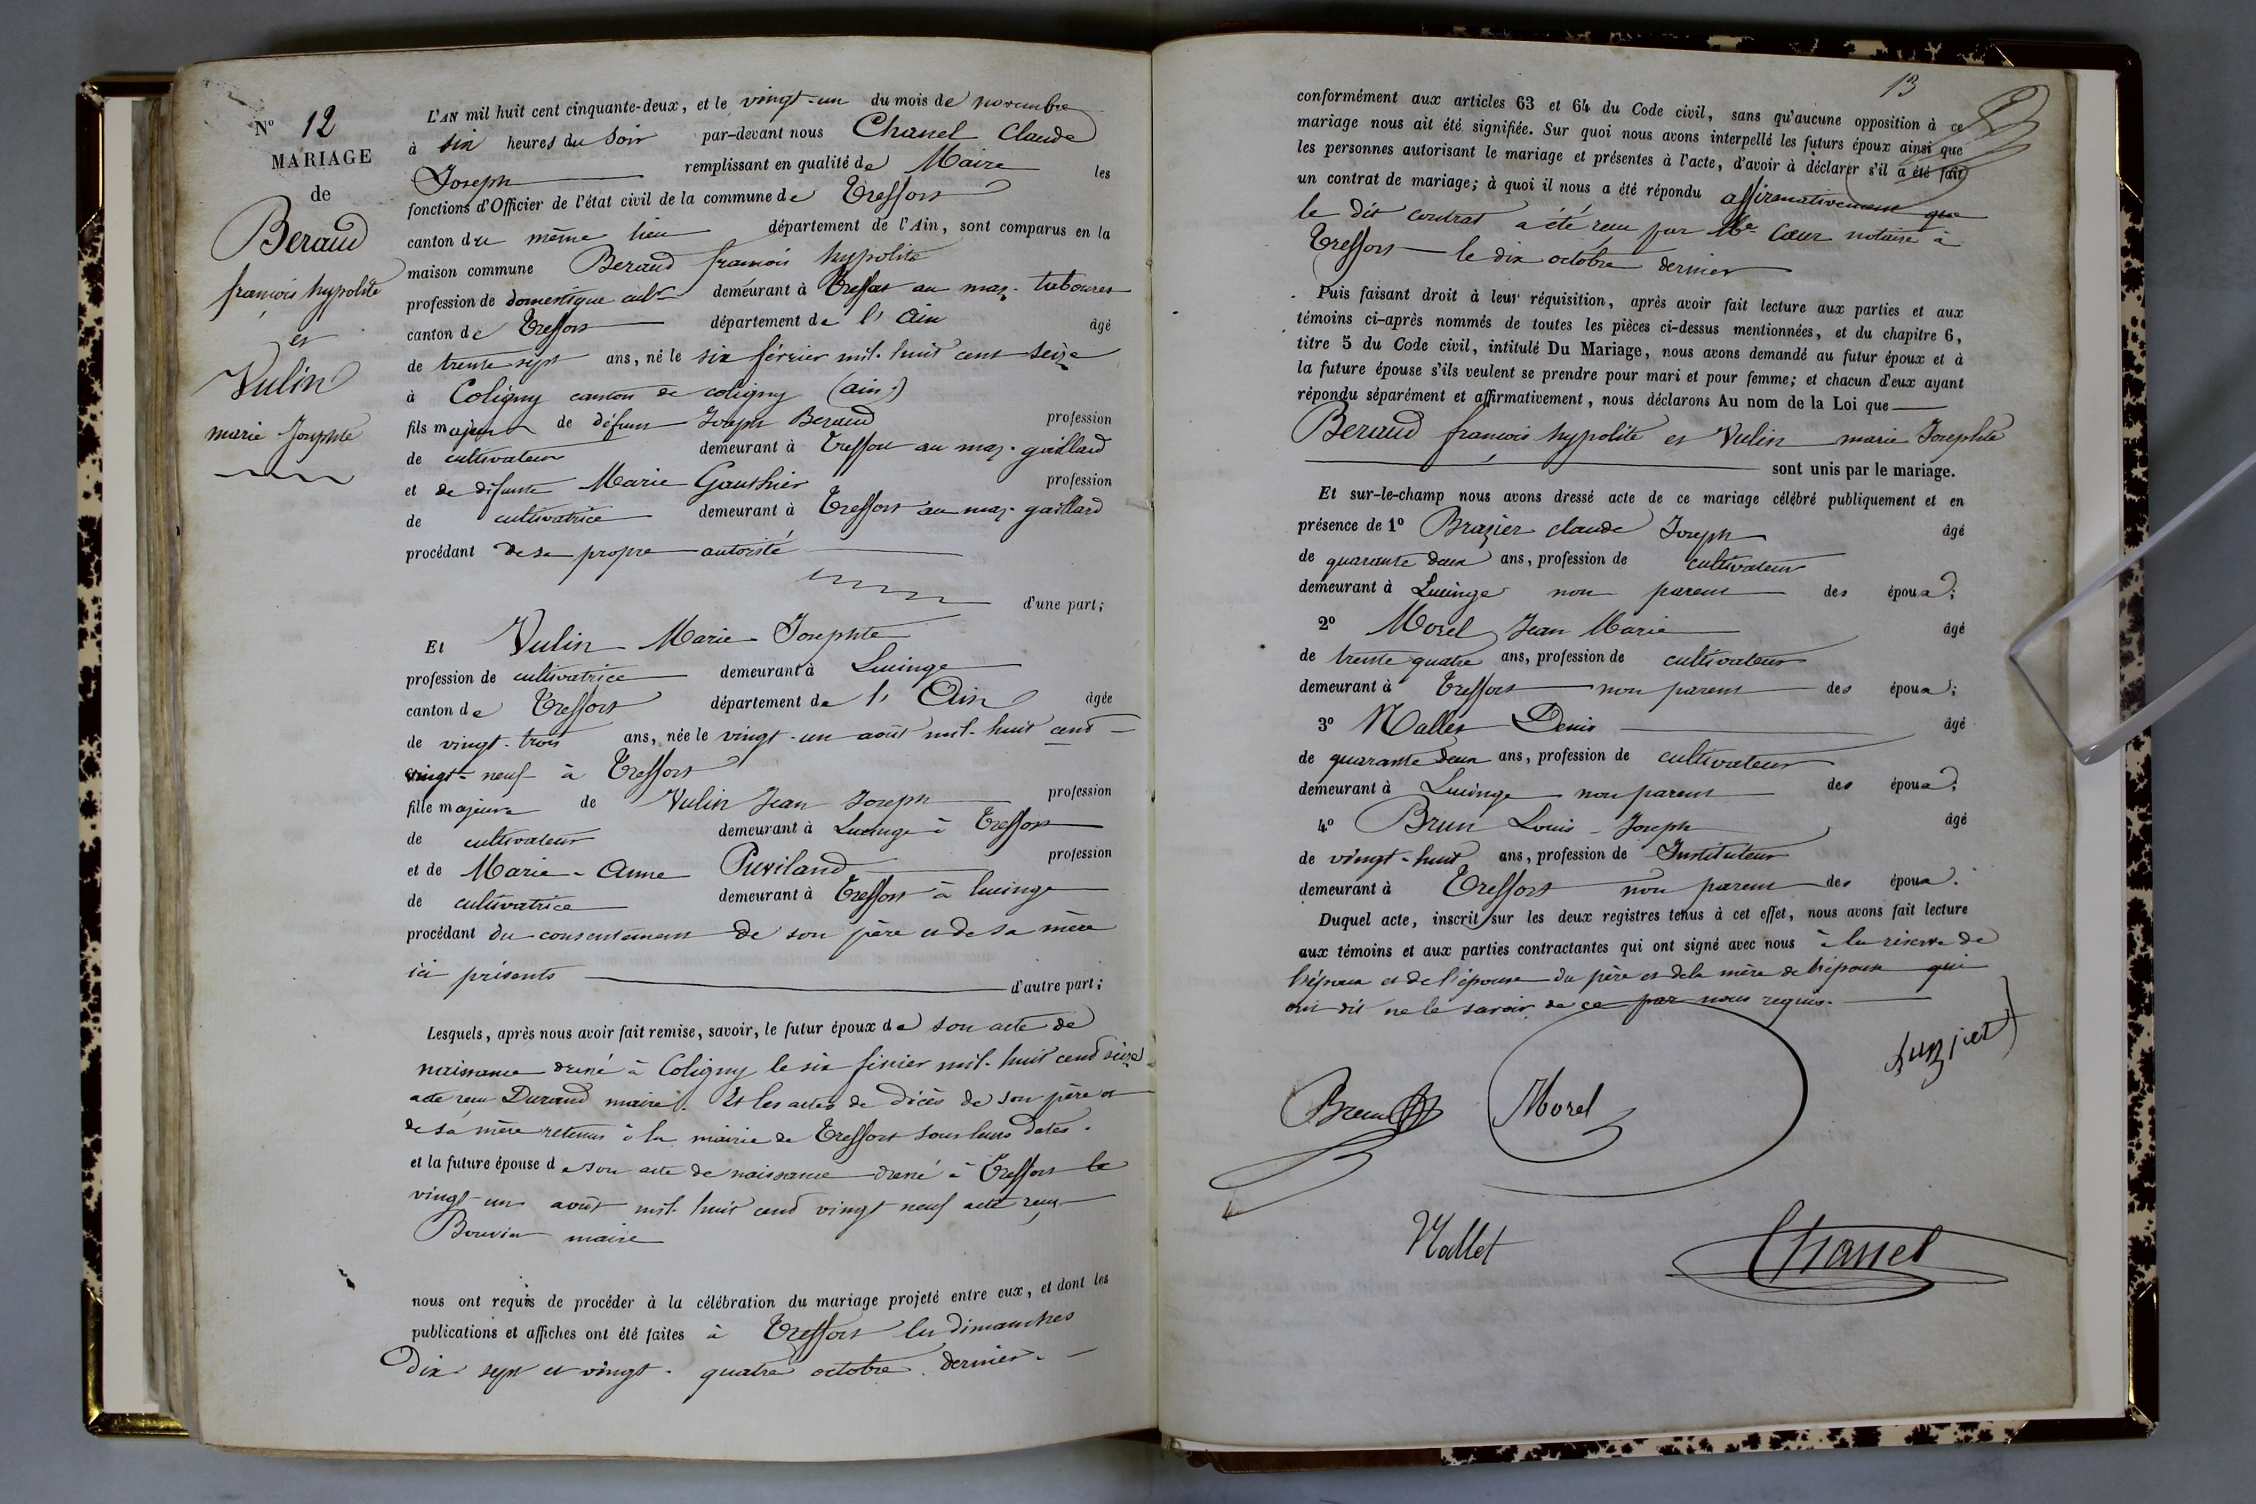 N° 12
MARIAGE
de
Beraud
françois hypolite
et
Vulin
marie Josephte
L'AN mil huit cent cinquante-deux, et le vingt-un du mois de novembre
à six heures du Soir par-devant nous Chanel Claude
Joseph remplissant en qualité de Maire les
fonctions d'Officier de l'état civil de la commune de Treffort
canton du même lieu département de l'Ain, sont comparus en la
maison commune Beraud françois hypolite
profession de domestique cult demeurant à Treffort au maz
canton de Treffort département de l'Ain âgé
de trente sept ans, né le six février mil-huit cent seize
à Coligny canton de coligny (ain)
fils majeur de défunt Joseph Beraud profession
de cultivateur demeurant à Treffort au maz-gaillard
et de défunte Marie Gauthier profession
de cultivatrice demeurant à Treffort au maz-gaillard
procédant de sa propre autorité
d'une part;
Et Vulin Marie Josephte
profession de cultivatrice demeurant à Lucinge
canton de Treffort département de l'Ain âgée
de vingt-trois ans, née le vingt-un août mil-huit cent
vingt-neuf à Treffort
fille majeure de Vulin Jean Joseph profession
de cultivateur demeurant à Lucinge à Treffort
et de Marie-Anne Puviland profession
de cultivatrice demeurant à Treffort à lucinge
procédant du consentement de son père et de sa mère
ici présents d'autre part;
Lesquels, après nous avoir fait remise, savoir, le futur époux de son acte de
naissance dressé à Coligny le six février mil-huit cent seize
acte reçu Durand maire. Et les actes de décès de son père et
de sa mère retenus à la mairie de Treffort sous leurs dates.
et la future épouse de son acte de naissance dressé à Treffort le
vingt-un août mil-huit cent vingt neuf acte reçu
Bouvier maire
nous ont requis de procéder à la célébration du mariage projeté entre eux, et dont les
publications et affiches ont été faites à Treffort les dimanches
dix sept et vingt-quatre octobre dernier.
13
conformément aux articles 63 et 64 du Code civil, sans qu'aucune opposition à ce
mariage nous ait été signifiée. Sur quoi nous avons interpellé les futurs époux ainsi que
les personnes autorisant le mariage et présentes à l'acte, d'avoir à déclarer s'il a été fait
un contrat de mariage; à quoi il nous a été répondu affirmativement que
le dit contrat a été reçu par Me Cœur notaire à
Treffort le dix octobre dernier
Puis faisant droit à leur réquisition, après avoir fait lecture aux parties et aux
témoins ci-après nommés de toutes les pièces ci-dessus mentionnées, et du chapitre 6,
titre 5 du Code civil, intitulé Du Mariage, nous avons demandé au futur époux et à
la future épouse s'ils veulent se prendre pour mari et pour femme; et chacun d'eux ayant
répondu séparément et affirmativement, nous déclarons Au nom de la Loi que
Beraud françois hypolite et Vulin marie Josephte
sont unis par le mariage.
Et sur-le-champ nous avons dressé acte de ce mariage célébré publiquement et en
présence de 1° Brazier claude Joseph âgé
de quarante deux ans, profession de cultivateur
demeurant à Lucinge non parent des époux;
2° Morel Jean Marie âgé
de trente quatre ans, profession de cultivateur
demeurant à Treffort non parent des époux;
3° Mallet Denis âgé
de quarante deux ans, profession de cultivateur
demeurant à Lucinge non parent des époux;
4° Brun Louis-Joseph âgé
de vingt-huit ans, profession de Instituteur
demeurant à Treffort non parent des époux.
Duquel acte, inscrit sur les deux registres tenus à cet effet, nous avons fait lecture
aux témoins et aux parties contractantes qui ont signé avec nous à la réserve de
l'époux et de l'épouse du père et de la mère de l'épouse qui
ont dit ne le savoir de ce par nous requis.
Brun Morel
Mallet Chanel